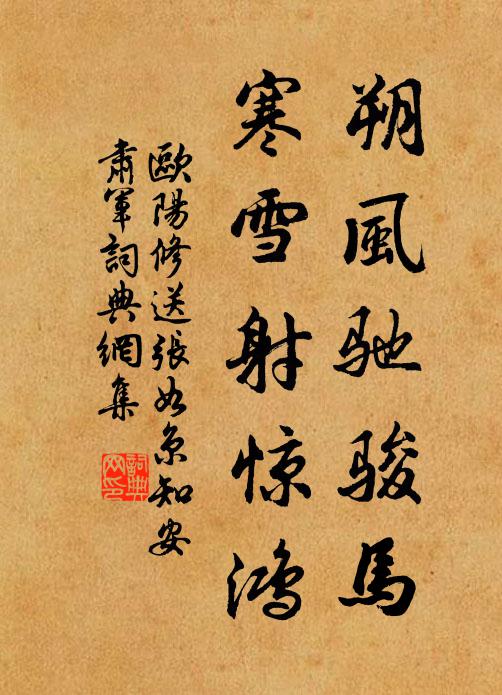 朔風馳駿馬
寒雪射惊鸿
歐陽修送張如京知安
肅軍詞典網集
詞典
网印